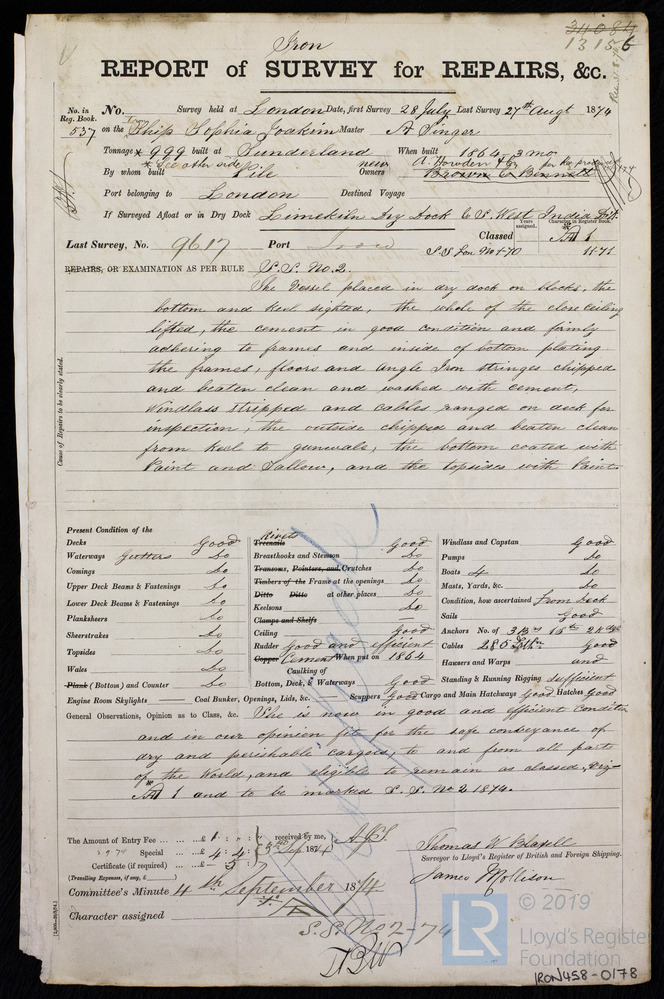 31084
13156
Iron
REPORT of SURVEY for REPAIRS, &c.
No. in Reg. Book. No. Survey held at London Date, first Survey 28 July Last Survey 27th Augt 1874
537 on the Ship Sophia Joakim Master A Singer
Tonnage 999 built at Sunderland When built 1864 3 mo
* See other side new A. Howden
By whom built Pile Owners Brown & Bennett
Port belonging to London Destined Voyage
If Surveyed Afloat or in Dry Dock Limekiln Dry Dock & S. West India Dk
Years assigned. Character in Register Book.
Last Survey, No. 9617 Port Iron Classed A 1
S.S Lon No 1-70 11-71
REPAIRS, OR EXAMINATION AS PER RULE S.S. No. 2.
The Vessel placed in dry dock on blocks, the
bottom and keel sighted, the whole of the close ceiling
lifted, the cement in good condition and firmly
adhering to frames and inside of bottom plating
the frames, floors and angle Iron stringers chipped
and beaten clean and washed with cement,
Windlass stripped and cables ranged on deck for
inspection, the outside chipped and beaten clean
from keel to gunwale, the bottom coated with
Paint and Tallow, and the topsides with Paint
Cause of Repairs to be clearly stated.
Present Condition of the
Decks Good
Waterways Gutters Do
Comings Do
Upper Deck Beams & Fastenings Do
Lower Deck Beams & Fastenings Do
Planksheers Do
Sheerstrakes Do
Topsides Do
Wales Do
Plank (Bottom) and Counter Do
Engine Room Skylights — Coal Bunker, Openings, Lids, &c. —
Rivets
Treenails Good
Breasthooks and Stemson Do
Transoms, Pointers, and Crutches Do
Timbers of the Frame at the openings Do
Ditto Ditto at other places Do
Keelsons Do
Clamps and Shelfs —
Ceiling Good
Rudder Good and efficient
Copper Cement When put on 1864
Caulking of
Bottom, Deck, & Waterways Good
Scuppers Good Cargo and Main Hatchways Good Hatches Good
Windlass and Capstan Good
Pumps Do
Boats 4 Do
Masts, Yards, &c. Do
Condition, how ascertained From deck
Sails Good
Anchors No. of 3 Bs 1 St 2 Kedges
Cables 285 Fthm Good
Hawsers and Warps and
Standing & Running Rigging sufficient
General Observations, Opinion as to Class, &c. She is now in good and efficient condition
and in our opinion fit for the safe conveyance of
dry and perishable cargoes, to and from all parts
of the World, and eligible to remain as classed, Viz-
A 1 and to be marked S. S. No 2 1874.
The Amount of Entry Fee ... ... £ 1 : received by me,
Special ... £ 4 : 4 : 3rd Sep 1874
Certificate (if required) ... £ 5
(Travelling Expenses, if any, £ )
Thomas W Blaxell
Surveyor to Lloyd's Register of British and Foreign Shipping.
James Mollison
Committee's Minute 4th September 1874
Character assigned
S. S. No 2-74
© 2019
LR
Lloyd's Register
Foundation
IRON458-0178